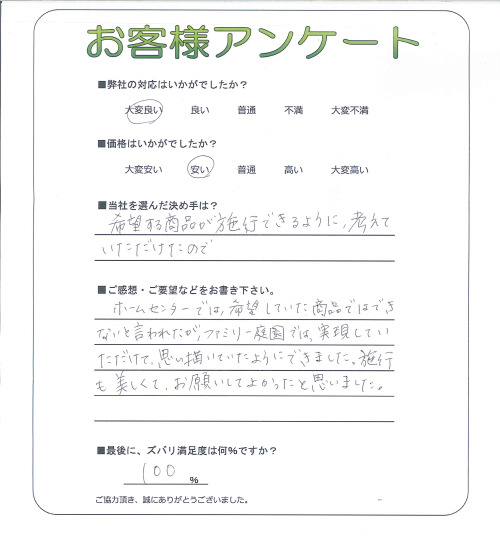 お客様アンケート
■弊社の対応はいかがでしたか？
大変良い 良い 普通 不満 大変不満
■価格はいかがでしたか？
大変安い 安い 普通 高い 大変高い
■当社を選んだ決め手は？
希望する商品が施行できるように、考えて
いただけたので
■ご感想・ご要望などをお書き下さい。
ホームセンターでは、希望していた商品ではでき
ないと言われたが、ファミリー庭園では、実現してい
ただけて、思い描いていたようにできました。施行
も美しくて、お願いしてよかったと思いました。
■最後に、ズバリ満足度は何％ですか？
100 %
ご協力頂き、誠にありがとうございました。